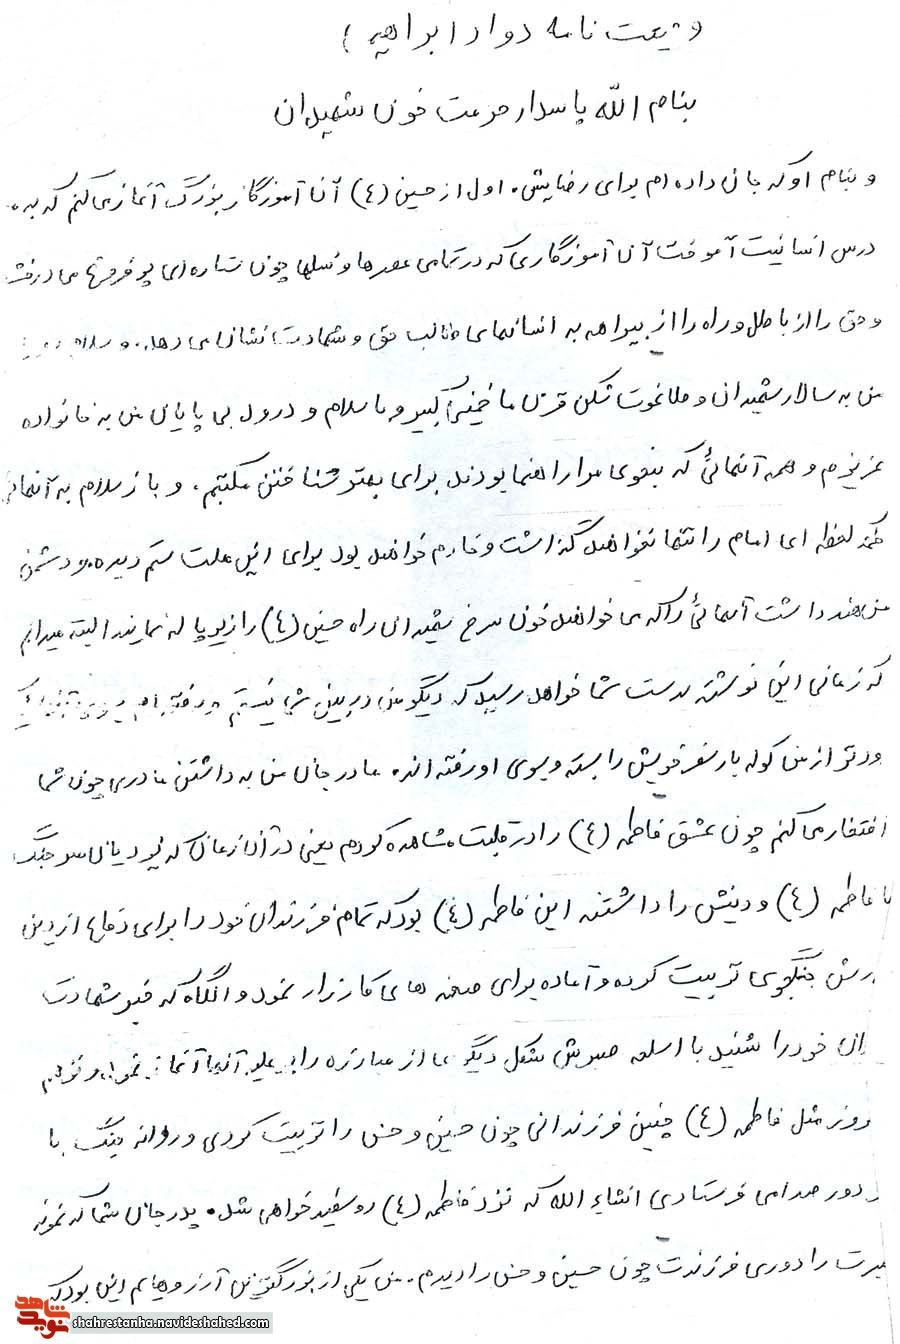 وصیت نامه دوار ابراهیم )
بنام الله پاسدار حرمت خون شهیدان
و بنام او که جان داده ام برای رضایش. اول از حسین (ع) آن آموزگار بزرگ آغاز می کنم که به
درس انسانیت آموخت آن آموزگاری که در تمامی عصرها و نسلها چون ستاره ای پر فروغ می درخشد
و حق را از باطل و راه را از بیراهه به انسانهای طالب حق و شهادت نشان می دهد. و سلام
من به سالار شهیدان و طاغوت شکن قرن ما خمینی کبیر و با سلام و درود بی پایان من به خانواده
عزیزم و همه آنهائی که بنحوی مرا راهنما بودند برای بهتر شناختن مکتبم. و باز سلام به آنهائی
که لحظه ای امام را تنها نخواهند گذاشت و خادم خواهند بود برای این ملت ستم دیده و دشمن
خواهند داشت آنهائی را که می خواهند خون سرخ شهیدان راه حسین (ع) را زیر پا له نمایند البته میدانم
که زمانی این نوشته بدست شما خواهد رسید که دیگر من در بین شما نیستم
زودتر از من کوله بار سفر خویش را بسته و بسوی او رفته اند. مادر جان من به داشتن مادری چون شما
افتخار می کنم چون عشق فاطمه (ع) را در قلبت مشاهده کردم یعنی در آن زمان که یزیدیان سر جنگ
با فاطمه (ع) و دینش را داشتند این فاطمه (ع) بود که تمام فرزندان خود را برای دفاع از دین
پدرش جنگجوی تربیت کرده و آماده برای صحنه های کارزار نمود و انگاه که خبر شهادت
خود را شنید با اسلحه صبرش شکل دیگری از مبارزه را بر علیه آنها آغاز نمود و تو هم
امروز مثل فاطمه (ع) چنین فرزندانی چون حسین و حسن را تربیت کردی و روانه جنگ با
مزدور صدامی فرستادی انشاء الله که نزد فاطمه (ع) رو سفید خواهی شد. پدر جان شما که نمونه
صبرت را دوری فرزندت چون حسین و حسن را دیدم. من یکی از بزرگترین آرزوهایم این بود که
نوید شاهد
shahrestanha.navideshahed.com